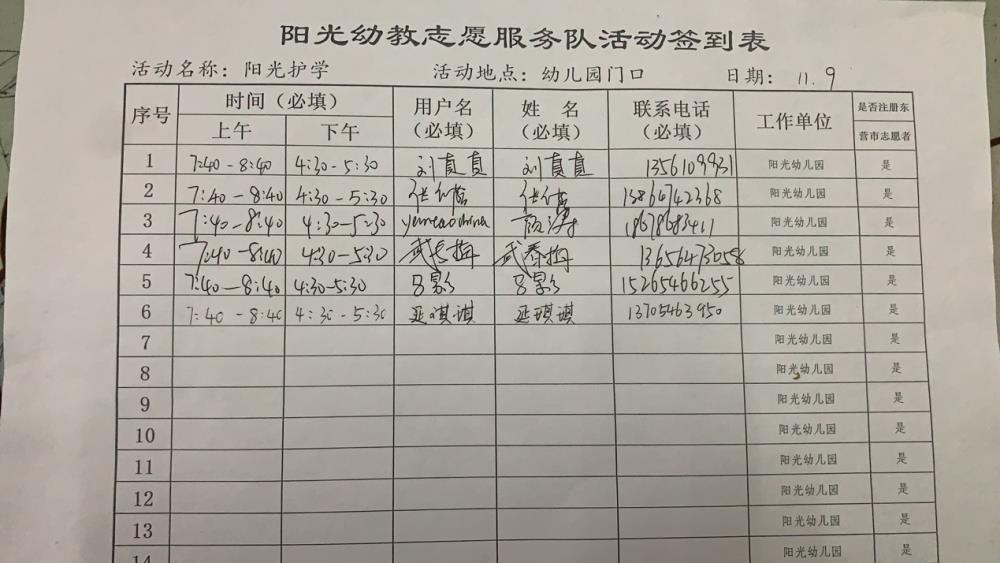 阳光幼教志愿服务队活动签到表
活动名称：阳光护学 活动地点：幼儿园门口 日期：11.9
序号 时间（必填） 用户名（必填） 姓 名（必填） 联系电话（必填） 工作单位 是否注册东营市志愿者
上午 下午
1 7:40-8:40 4:30-5:30 刘真真 刘真真 阳光幼儿园 是
2 7:40-8:40 4:30-5:30 15864742368 阳光幼儿园 是
3 7:40-8:40 4:30-5:30 18678683411 阳光幼儿园 是
4 7:40-8:40 4:30-5:30 武春梅 武春梅 13656473058 阳光幼儿园 是
5 7:40-8:40 4:30-5:30 吕影 吕影 15265466255 阳光幼儿园 是
6 7:40-8:40 4:30-5:30 琪琪 琪琪 13705463950 阳光幼儿园 是
7 阳光幼儿园 是
8 阳光幼儿园 是
9 阳光幼儿园 是
10 阳光幼儿园 是
11 阳光幼儿园 是
12 阳光幼儿园 是
13 阳光幼儿园 是
14 阳光幼儿园 是